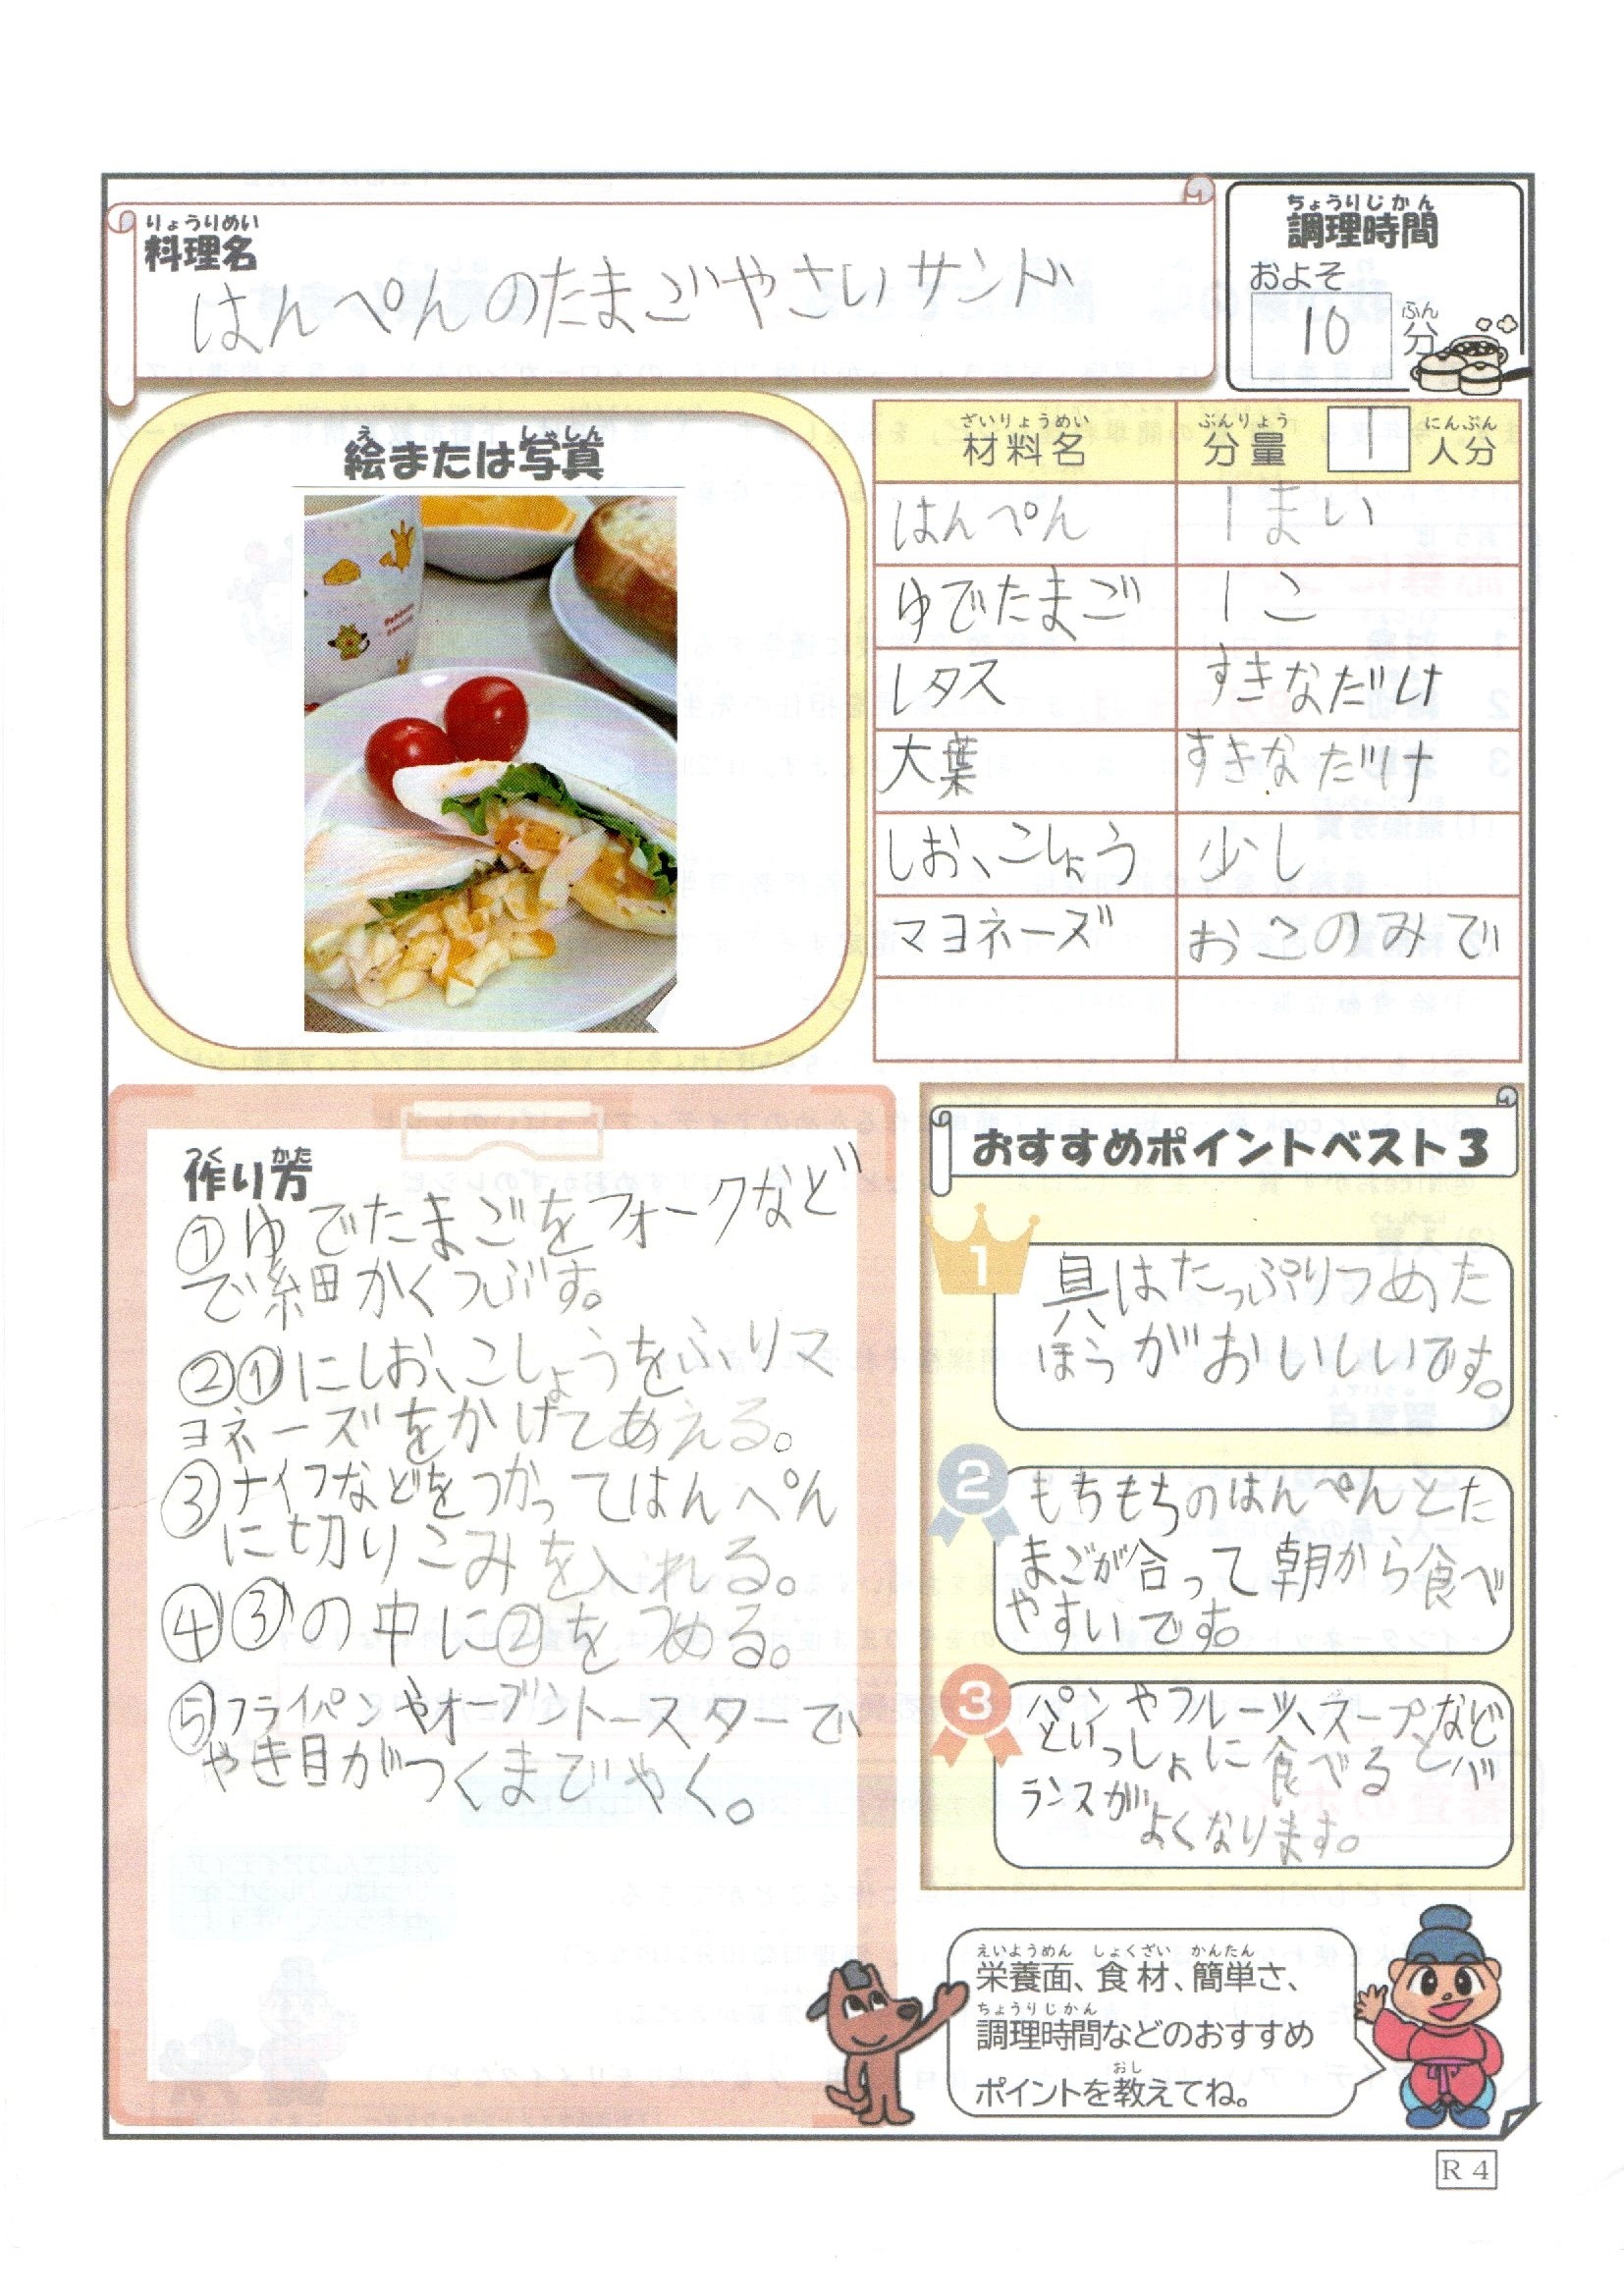 りょうりめい
料理名
はんぺんのたまごやさいサンド
ちょうりじかん
調理時間
およそ
10 分
ふん
え しゃしん
絵または写真
ざいりょうめい ぶんりょう にんぶん
材料名 分量 1 人分
はんぺん 1まい
ゆでたまご 1こ
レタス すきなだけ
大葉 すきなだけ
しお、こしょう 少し
マヨネーズ おこのみで
つく かた
作り方
①ゆでたまごをフォークなど
で細かくつぶす。
②①にしお、こしょうをふりマ
ヨネーズをかけてあえる。
③ナイフなどをつかってはんぺん
に切りこみを入れる。
④③の中に②をつめる。
⑤フライパンやオーブントースターで
やき目がつくまでやく。
おすすめポイントベスト3
1
具はたっぷりつめた
ほうがおいしいです。
2
もちもちのはんぺんとた
まごが合って朝から食べ
やすいです。
3
パンやフルーツ、スープなど
といっしょに食べるとバ
ランスが
よくなります。
えいようめん しょくざい かんたん
栄養面、食材、簡単さ、
ちょうりじかん
調理時間などのおすすめ
おし
ポイントを教えてね。
R4